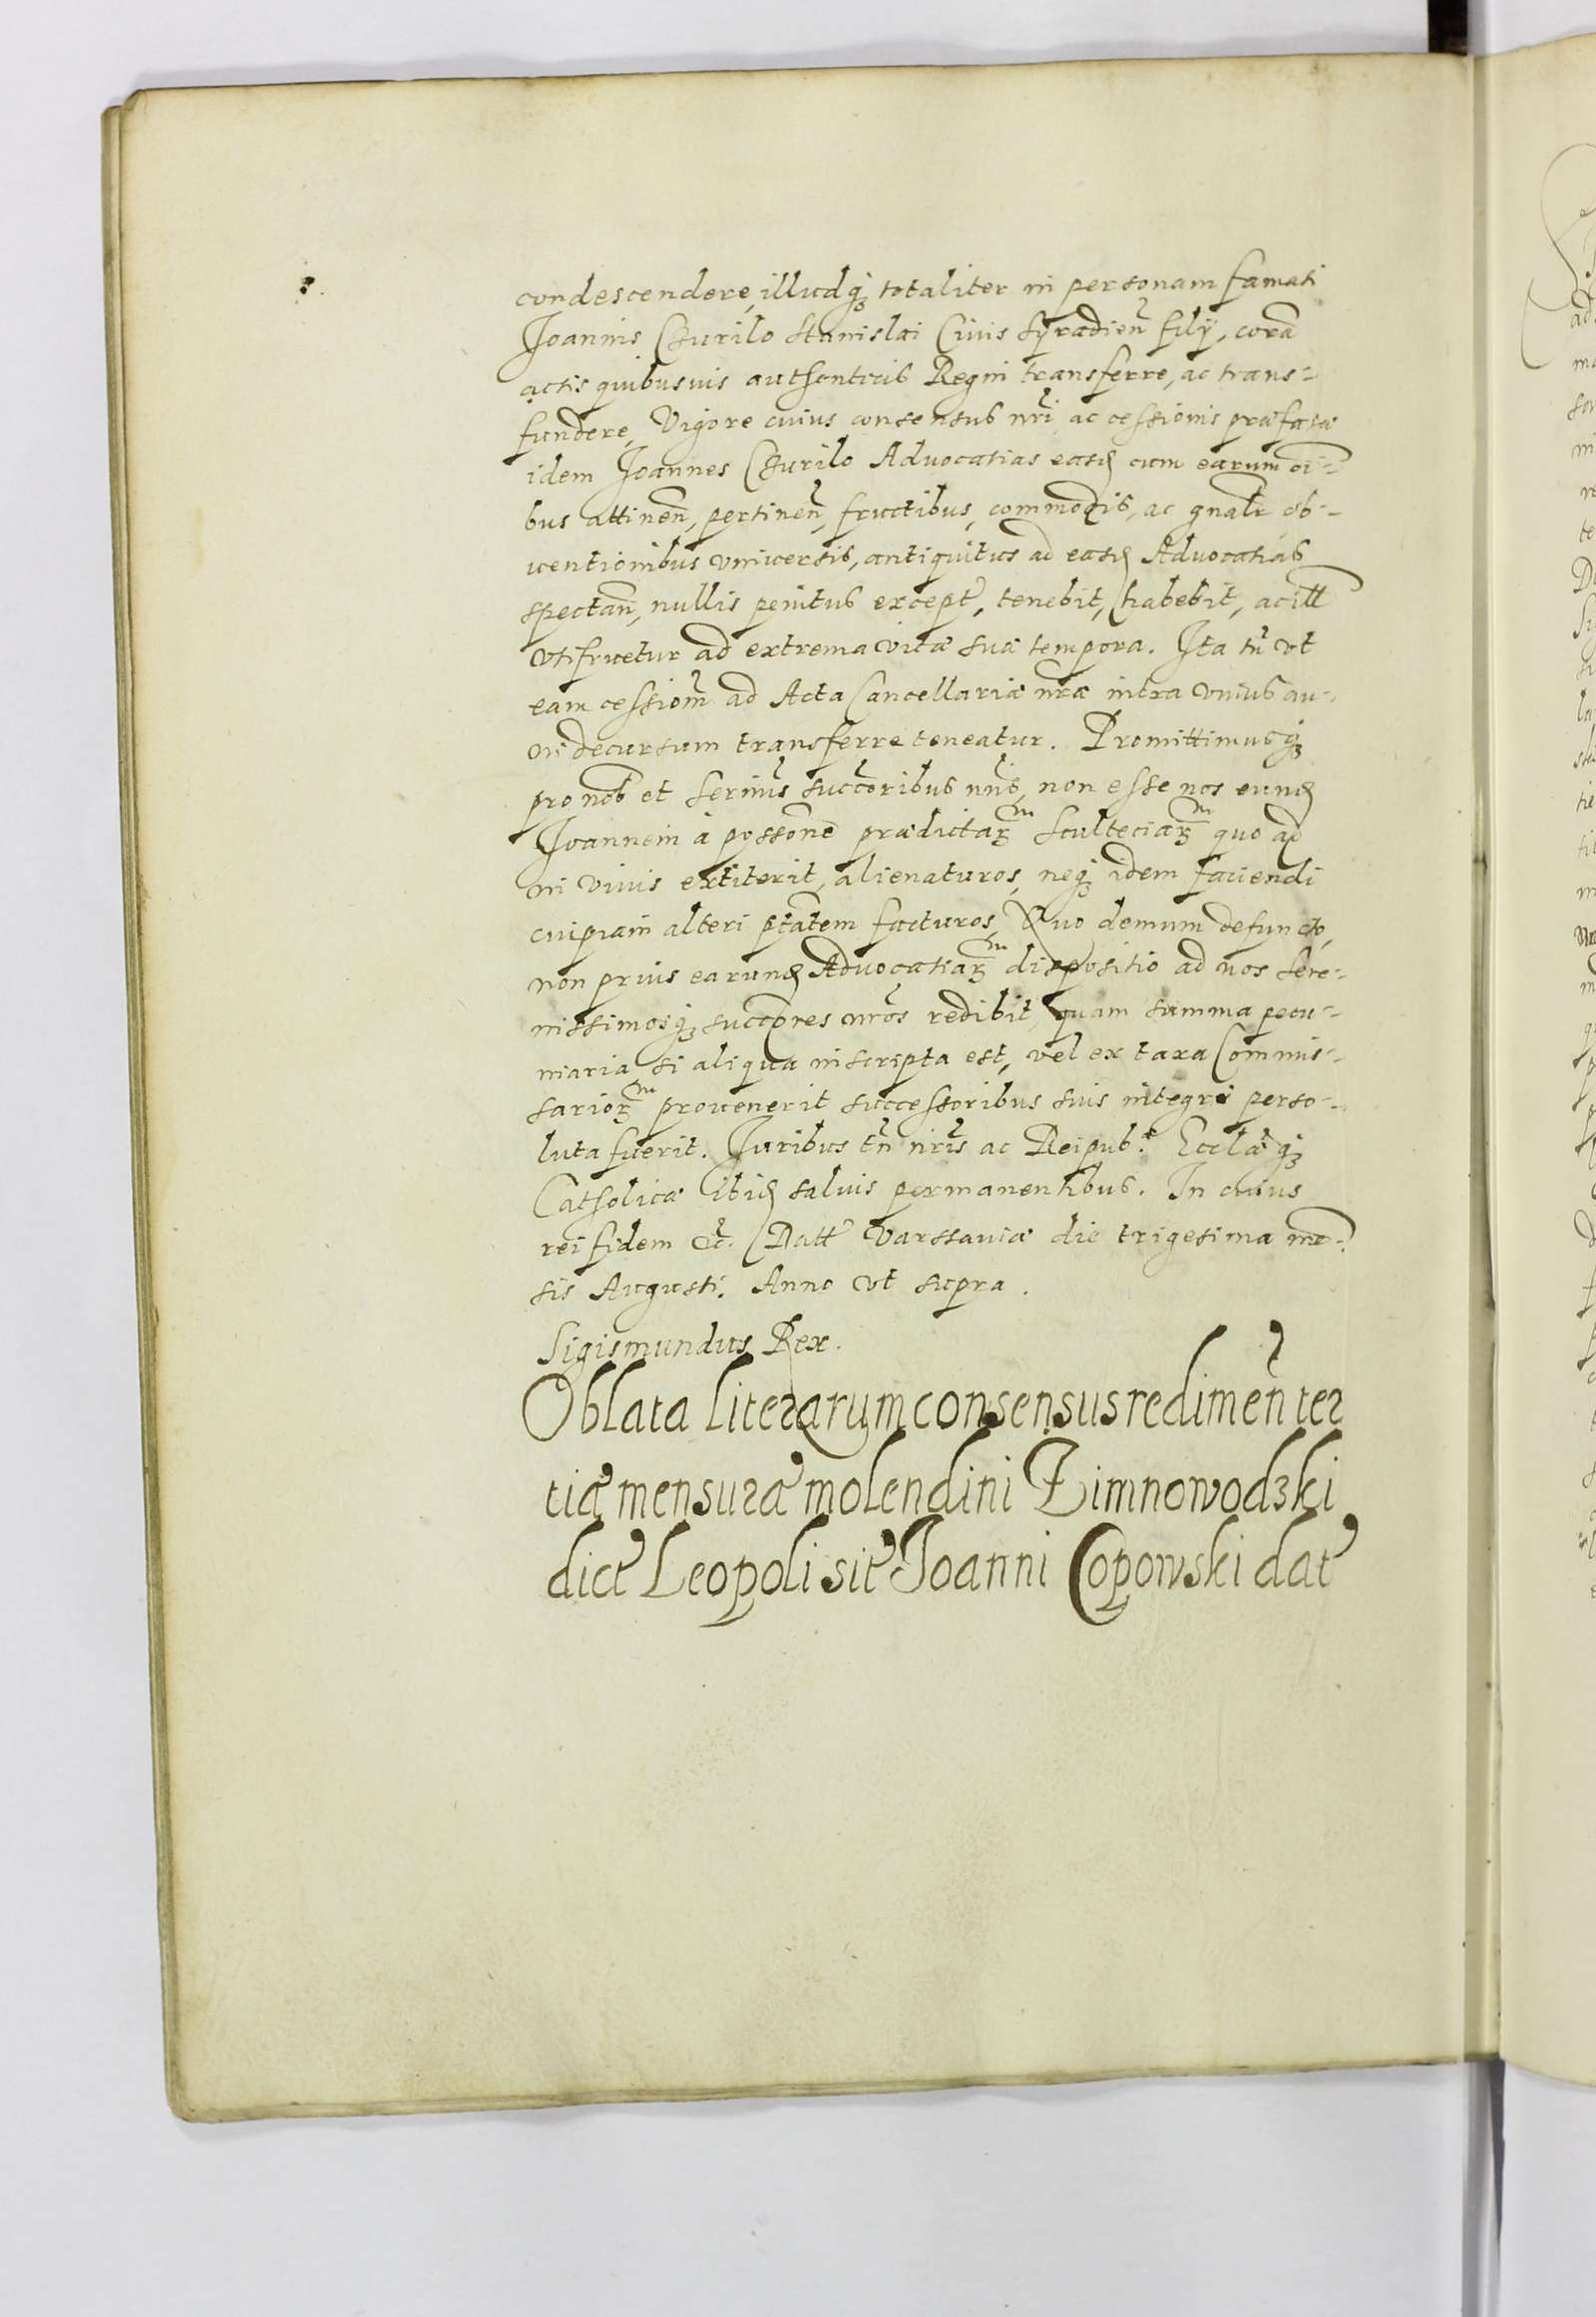 condescendere, illudq3 totaliter in personam famati
Joannis Czurilo Stanislai Civis Syradien̄ filÿ, corā
actis quibusuis authenticis Regni transferre, ac trans-
fundere, Vigore cuius consensus nr̄i ac cessionis præfatæ
idem Joannes Czurilo Advocatias easd cum earum oī-
bus attinen̄, pertinen̄, fructibus, commodis, ac gnalr̄ ob-
uentionibus vniuersis, antiquitus ad easd Advocatias
spectan̄, nullis penitus except, tenebit, habebit, ac ill
vtifruetur ad extrema vitæ suæ tempora. Ita tn̄ vt
eam cessiom̄ ad Acta Cancellariæ nr̄æ intra vnius an-
ni decursum transferre teneatur. Promittimusq3
pro nob̄ et Serm̄is succ̄oribus nr̄is, non esse nos eund
Joannem à possōne prædictar3m Sculteciar3m quo ad
in viuis extiterit, alienaturos, neq3 idem faciendi
cuipiam alteri pt̄atem facturos, Quo demum defuncto,
non prius earund Advocatiar3m dispositio ad nos Sere-
nissimosq3 succōres nr̄os redibit, quam summa pecu-
niaria si aliqua inscripta est, vel ex taxa Commis-
sarior3m prouenerit successoribus suis integrè perso-
luta fuerit. Juribus tn̄ nr̄is ac Reipub. Eccl̄æq3
Catholicæ ibid saluis permanentibus. In cuius
rei fidem &c. Datt Varssauiæ die trigesima mē-
sis Augusti. Anno vt supra.
Sigismundus Rex.
Oblata literarum consensus redimen̄ ter
tiæ mensuræ molendini Zimnowodzki
dict Leopoli sit Joanni Copowski dat